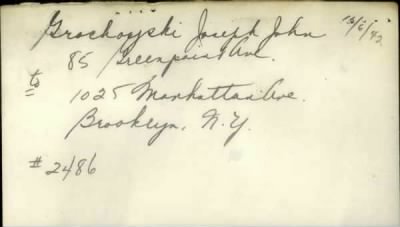 Grochowski Joseph John 10/6/42
85 Greenpoint Ave.
to
1025 Manhattan Ave.
Brooklyn, N.Y.
# 2486